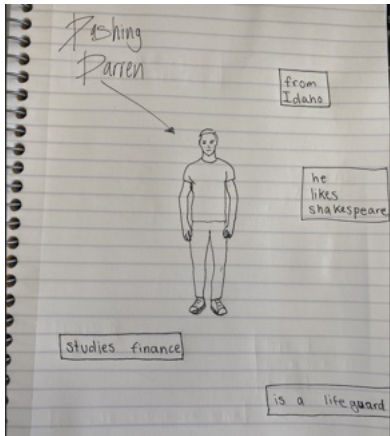 Dashing
Darren
from
Idaho
he
likes
shakespeare
studies finance
is a lifeguard